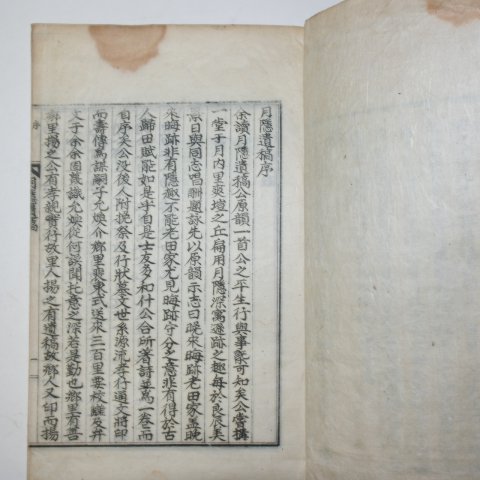 月隱遺稿序
余讀月隱遺稿公原韻一首公之平生行與事豪可知矣公嘗搆
一堂于月內里爽塏之丘扁用月隱深寓遯跡之趣每於良辰美
景日與同志唱酬題詠先以原韻示志曰晚來晦跡老田家盖晚
來晦跡非有隱趣不能老田家尤見晦跡守分之意非有得於古
人歸田賦能如是乎自是士友多和什公合所著詩並為一卷而
自序矣公沒後人附挽祭及行狀墓文世系源流孝行通文將印
而壽傳為謀嗣子允煥介鄉里裵東式送來三百里要校雠及弁
文于余余固蔑識允煥從何誤聞托意之深若是勤也鄉里有善
鄉里揚之公有孝親實行故里人揚之有遺稿故鄉人又印而揚
序
一